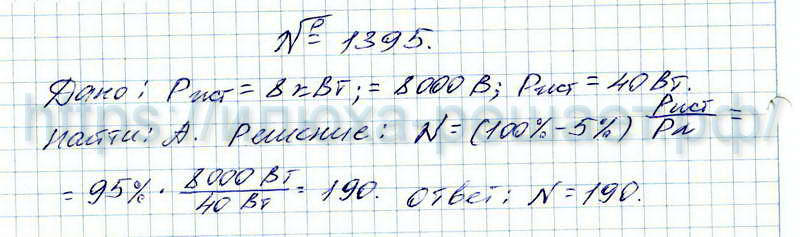 № 1395.
Дано: Pист = 8 кВт; = 8000 В; Pист = 40 Вт.
Найти: A. Решение: N = (100% - 5%) Pист/Pл =
= 95% · 8000 Вт/40 Вт = 190. Ответ: N = 190.